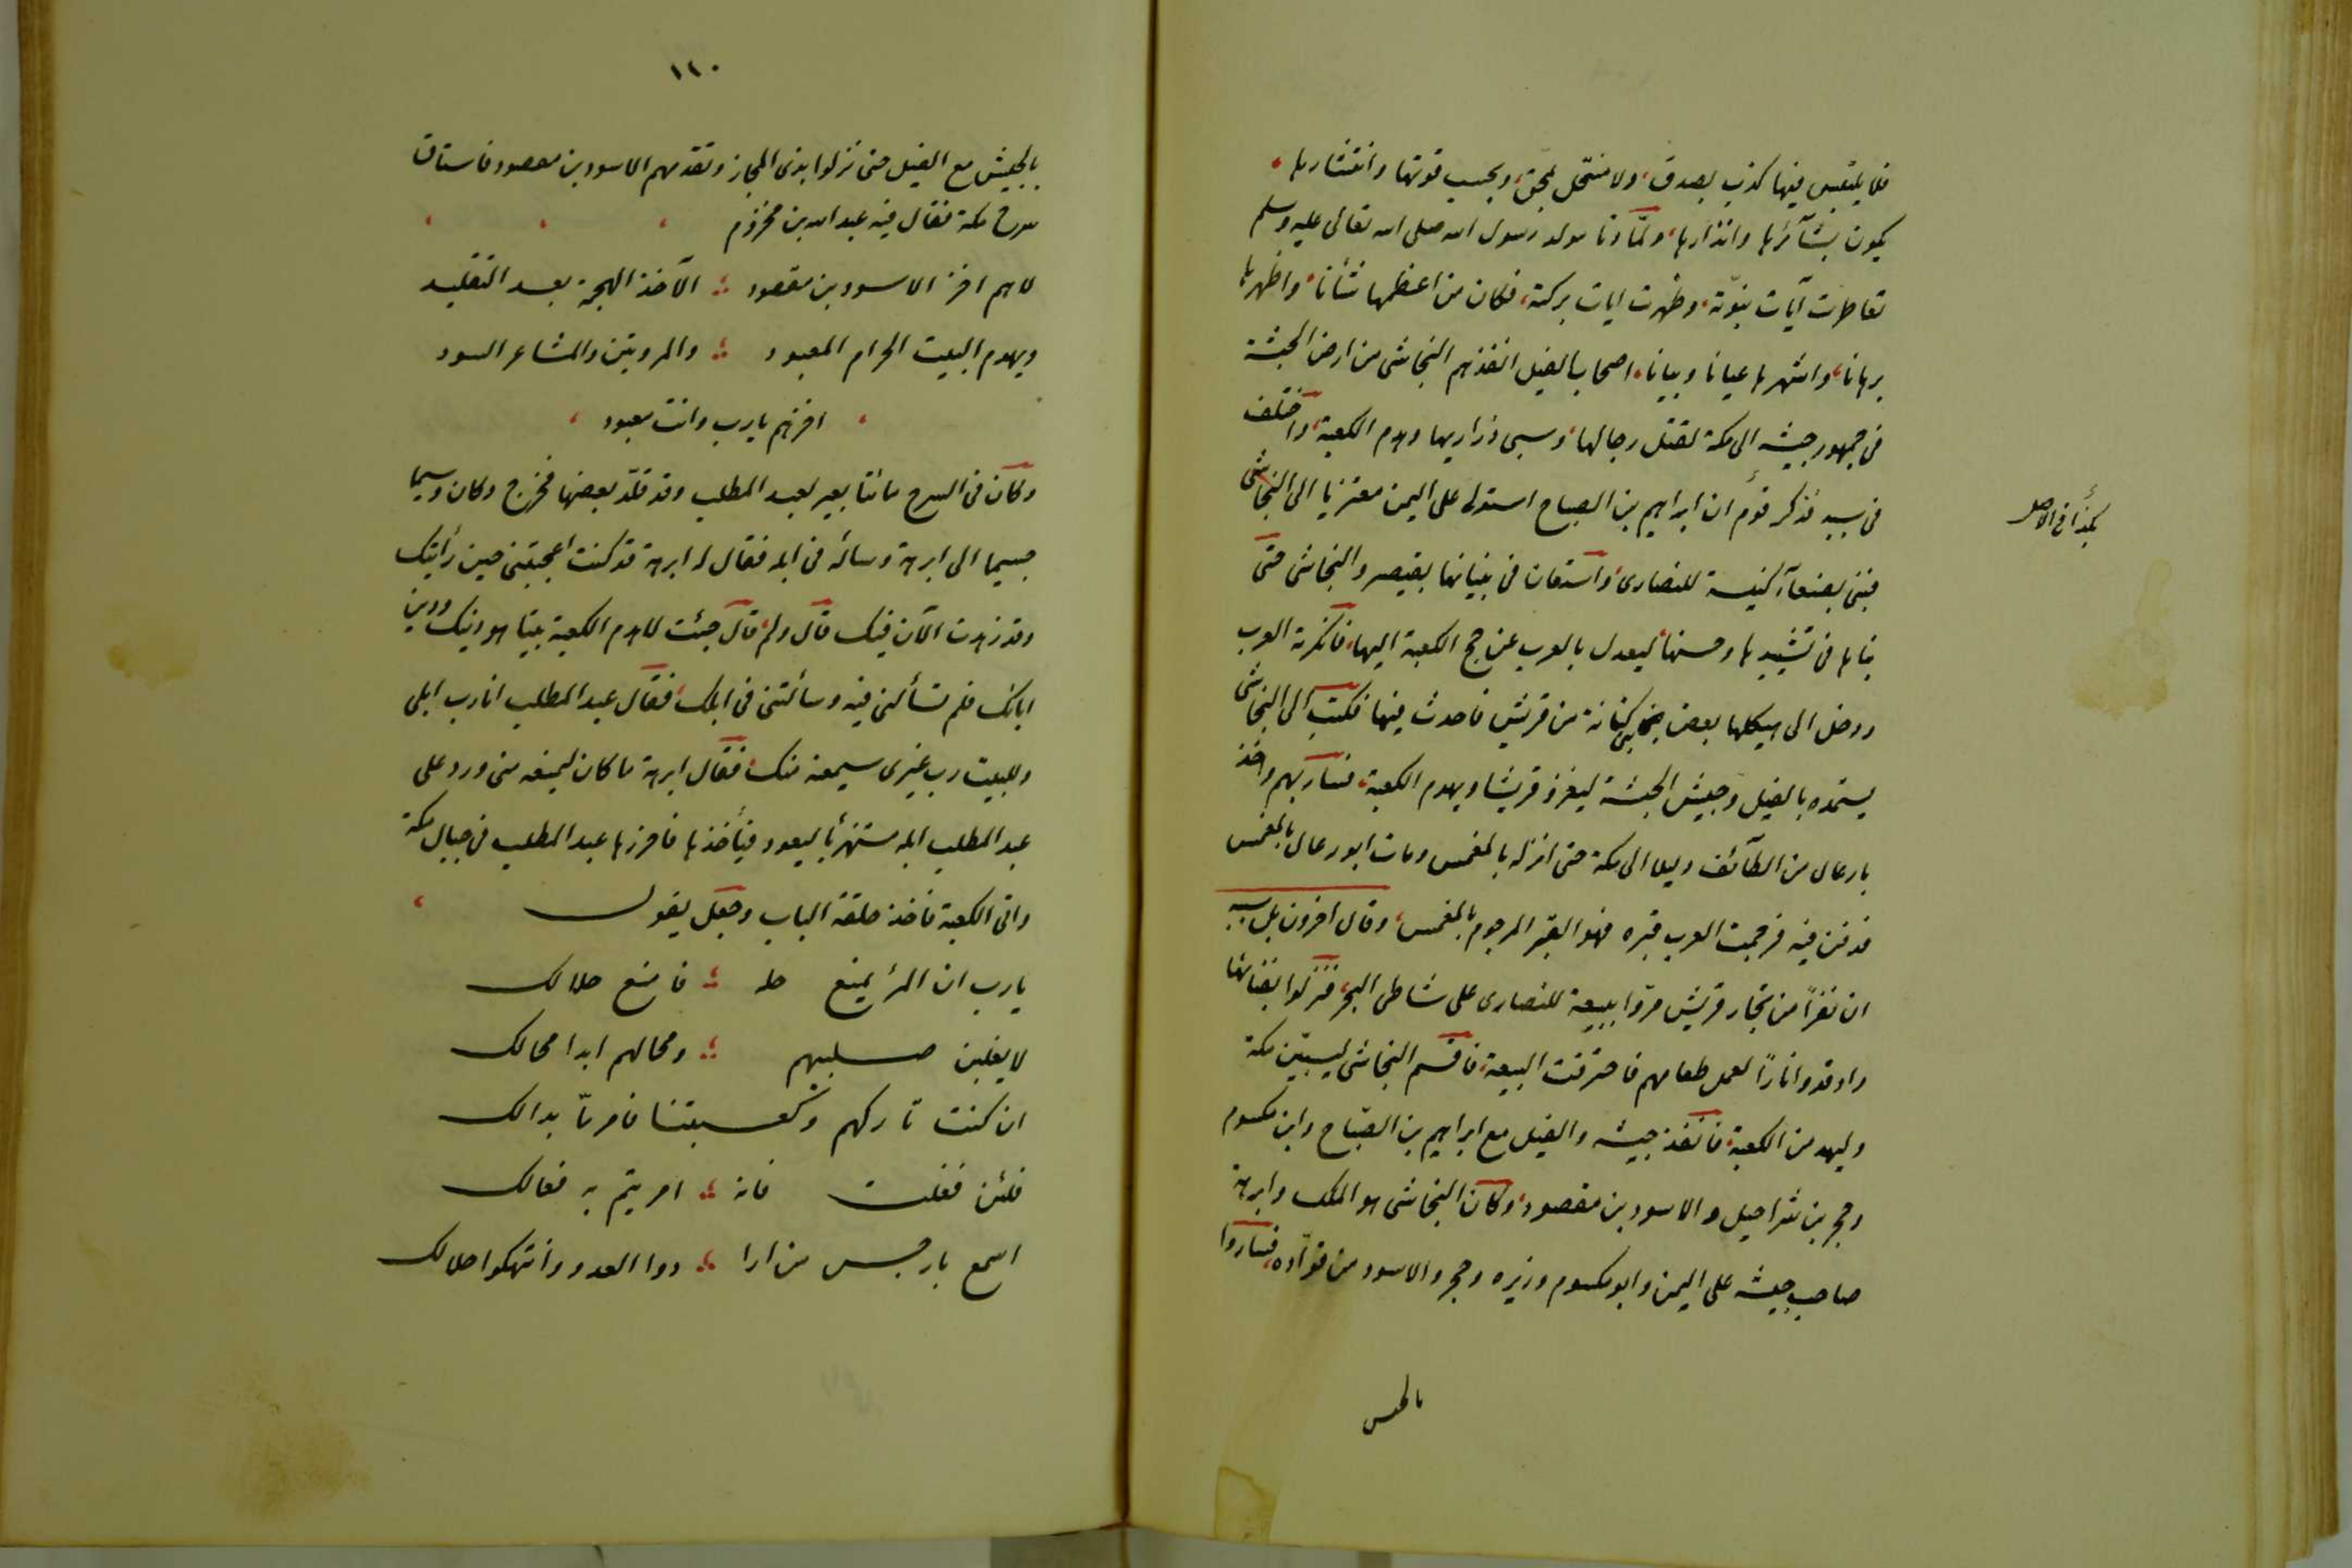 فلا يلتبس فيها كذب بصدق، ولا منتحل بمحق، وبحسب قوتها وانتشارها
يكون بشآئرها وانذارها، ولمّا دنا مولد رسول الله صلى الله تعالى عليه وسلم
تقاطرت آيات نبوّته، وظهرت ايات بركته، فكان من اعظمها شأنا، واظهرها
برهانا، واشهرها عيانا وبيانا، اصحاب الفيل انفذهم النجاشى من ارض الحبشة
فى جمهور جيشه الى مكة لقتل رجالها، وسبى ذراريها وهدم الكعبة، واختلف
فى سببه فذكر قوم ان ابراهيم بن الصباح استولى على اليمن معتزيا الى النجاشى
هكذا فى الاصل
فبنى بصنعآء كنيسة للنصارى، واستعان فى بنيانها بقيصر والنجاشى حتى
بناها فى تشييدها وحسنها ليعدل بالعرب عن حج الكعبة اليها، فانكرته العرب
ودخل الى هيكلها بعض بنى كنانة من قريش فاحدث فيها فكتب الى النجاشى
يستمده بالفيل وجيش الحبشة ليغزو قريشا ويهدم الكعبة، فسار بهم واخذ
بارعال من الطآئف دليلا الى مكة حتى انزله بالمغمس ومات ابورعال بالمغمس
فدفن فيه فرجمت العرب قبره فهو القبر المرجوم بالمغمس، وقال اخرون بل سببه
ان نفراً من تجار قريش مرّوا ببيعة للنصارى على شاطى البحر، فنزلوا بفنائها
واوقدوا ناراً لعمل طعامهم فاحترقت البيعة، فاقسم النجاشى ليسبين مكة
وليهدمن الكعبة، فانفذ جيشه والفيل مع ابراهيم بن الصبّاح وابن مكسوم
وحجر بن شراحيل والاسود بن مقصود، وكان النجاشى هو الملك وابرهة
صاحب جيشه على اليمن وابومكسوم وزيره وحجر والاسود من قوّاده، فساروا
بالجيش
١٢٠
بالجيش مع الفيل حتى نزلوا بذى المجاز وتقدمهم الاسود بن مقصود فاستاق
سرح مكة فقال فيه عبد الله بن مخزوم
لاهم اخز الاسود بن مقصود ؛ الآخذ الهجمة بعد التقليد
ويهدم البيت الحرام المعبود ؛ والمروتين والمشاعر السود
اخزهم يارب وانت معبود
وكان فى السرح مائتا بعير لعبد المطلب وقد قلّد بعضها فخرج وكان وسيما
جسيما الى ابرهة وسأله فى ابله فقال له ابرهة قد كنت اعجبتنى حين رأيتك
وقد زهدت الآن فيك قال ولم، قال جئت لاهدم الكعبة بيتا هو دينك ودين
ابائك فلم تسألنى فيه وسألتنى فى ابلك، فقال عبد المطلب انا رب ابلى
وللبيت رب غيرى سيمنعه منك، فقال ابرهة ما كان ليمنعه منى ورد على
عبد المطلب ابله مستهزئا ليعود فيأخذها فاحرزها عبد المطلب فى جبال مكة
واتى الكعبة فاخذ حلقة الباب وجعل يقول
يارب ان المرأ يمنع حله ؛ فامنع حلالك
لا يغلبن صليبهم ؛ ومحالهم ابدا محالك
ان كنت تاركهم وكعبتنا فامر مّا بدالك
فلئن فعلت فانه ؛ امر يتم به فعالك
اسمع بارجس من ارا ؛ دوا العدو وانتهكوا حلالك